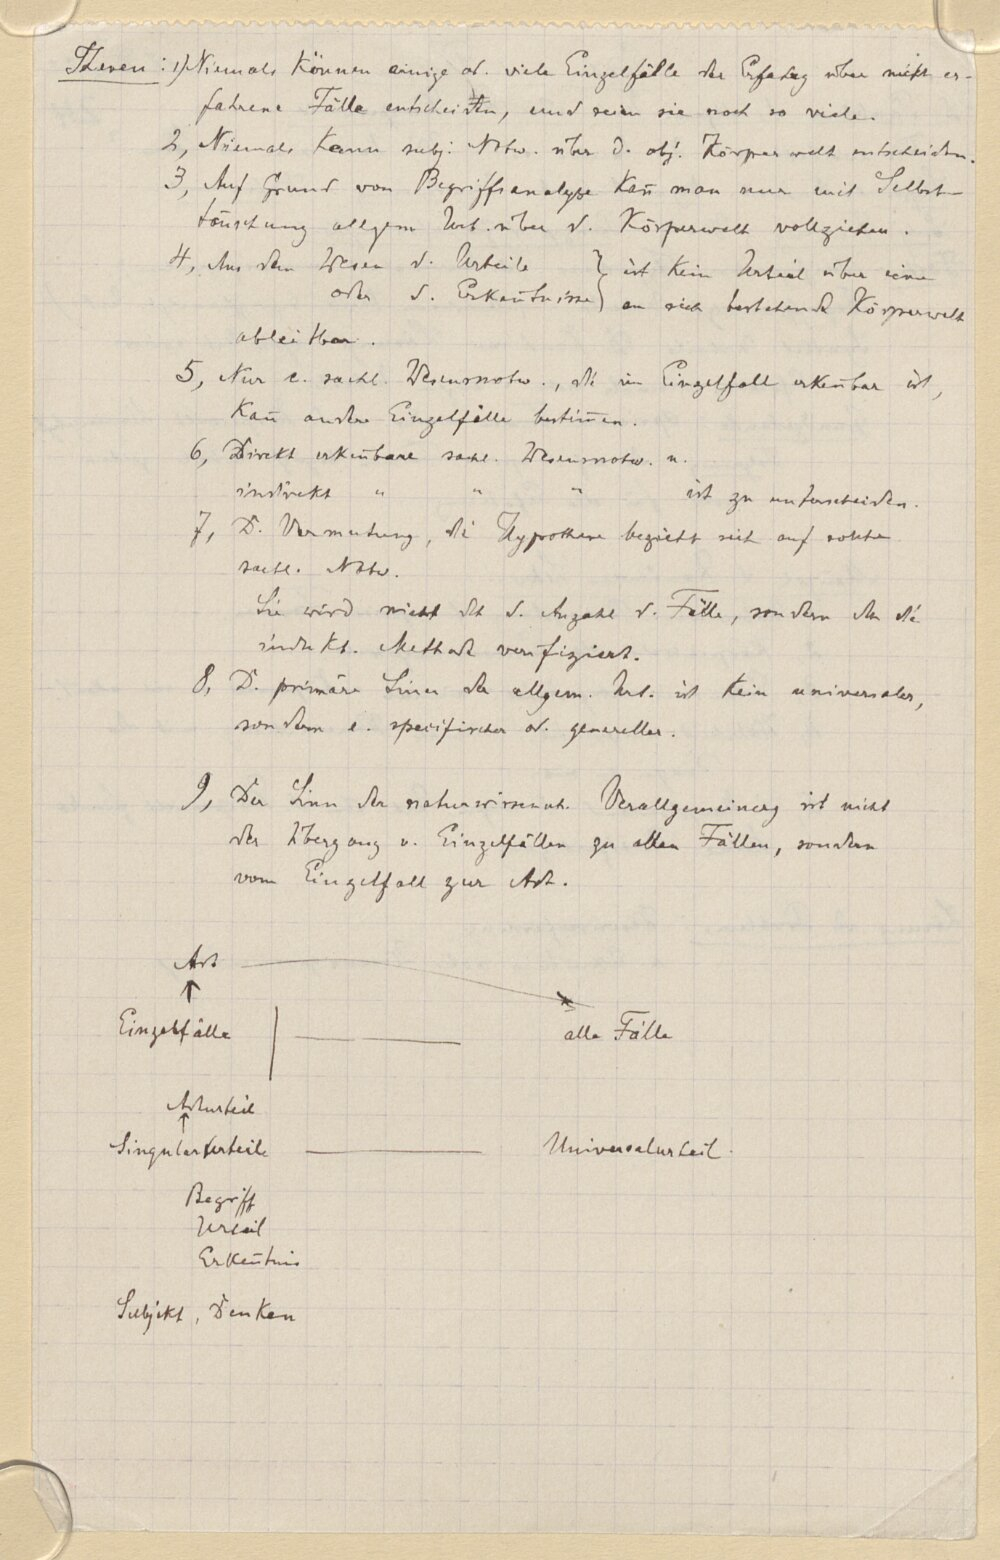 Thesen: 1) Niemals können einige od. viele Einzelfälle der Erfahrg über nicht er-
fahrene Fälle entscheiden, und seien sie noch so viele.
2, Niemals kann subj. Notw. über d. obj. Körperwelt entscheiden.
3, Auf Grund von Begriffsanalyse kañ man nur mit Selbst-
täuschung allgem Urt. über d. Körperwelt vollziehen.
4, Aus dem Wesen d. Urteile } ist kein Urteil über eine
oder d. Erkeñtnisse } an sich bestehende Körperwelt
ableitbar.
5, Nur e. sachl. Wesensnotw., die im Einzelfall erkeñbar ist,
kañ andere Einzelfälle bestim̄en.
6, Direkt erkeñbare sachl. Wesensnotw. u.
indirekt " " " ist zu unterscheiden.
7, D. Vermutung, die Hypothese bezieht sich auf solche
sachl. Notw.
Sie wird nicht dch d. Anzahl d. Fälle, sondern dch die
indukt. Methode verifiziert.
8, D. primäre Sinn der allgem. Urt. ist kein universaler,
sondern e. specifischer od. genereller.
9, Der Sinn der naturwissensch. Verallgemeinerg ist nicht
der Übergang v. Einzelfällen zu allen Fällen, sondern
vom Einzelfall zur Art.
Art
↑
Einzelfälle | — — alle Fälle
Arturteil
↑
Singularurteile — Universalurteil.
Begriff
Urteil
Erkeñtnis
Subjekt, Denken